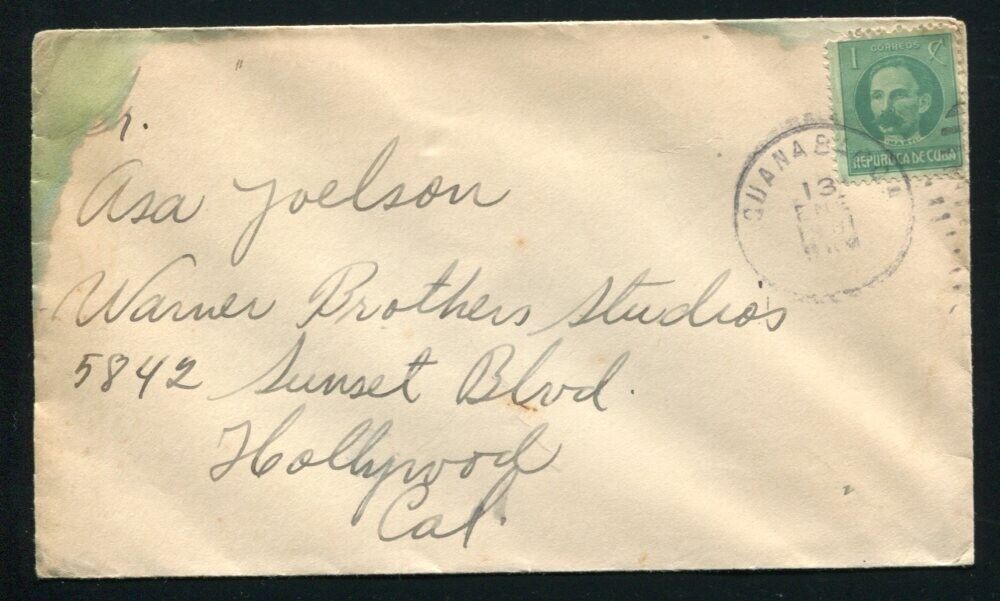 1 CORREOS ¢
MARTI
REPUBLICA DE CUBA
GUANABACOA
13
ENE
r.
Asa Joelson
Warner Brothers Studios
5842 Sunset Blvd.
Hollywood
Cal.